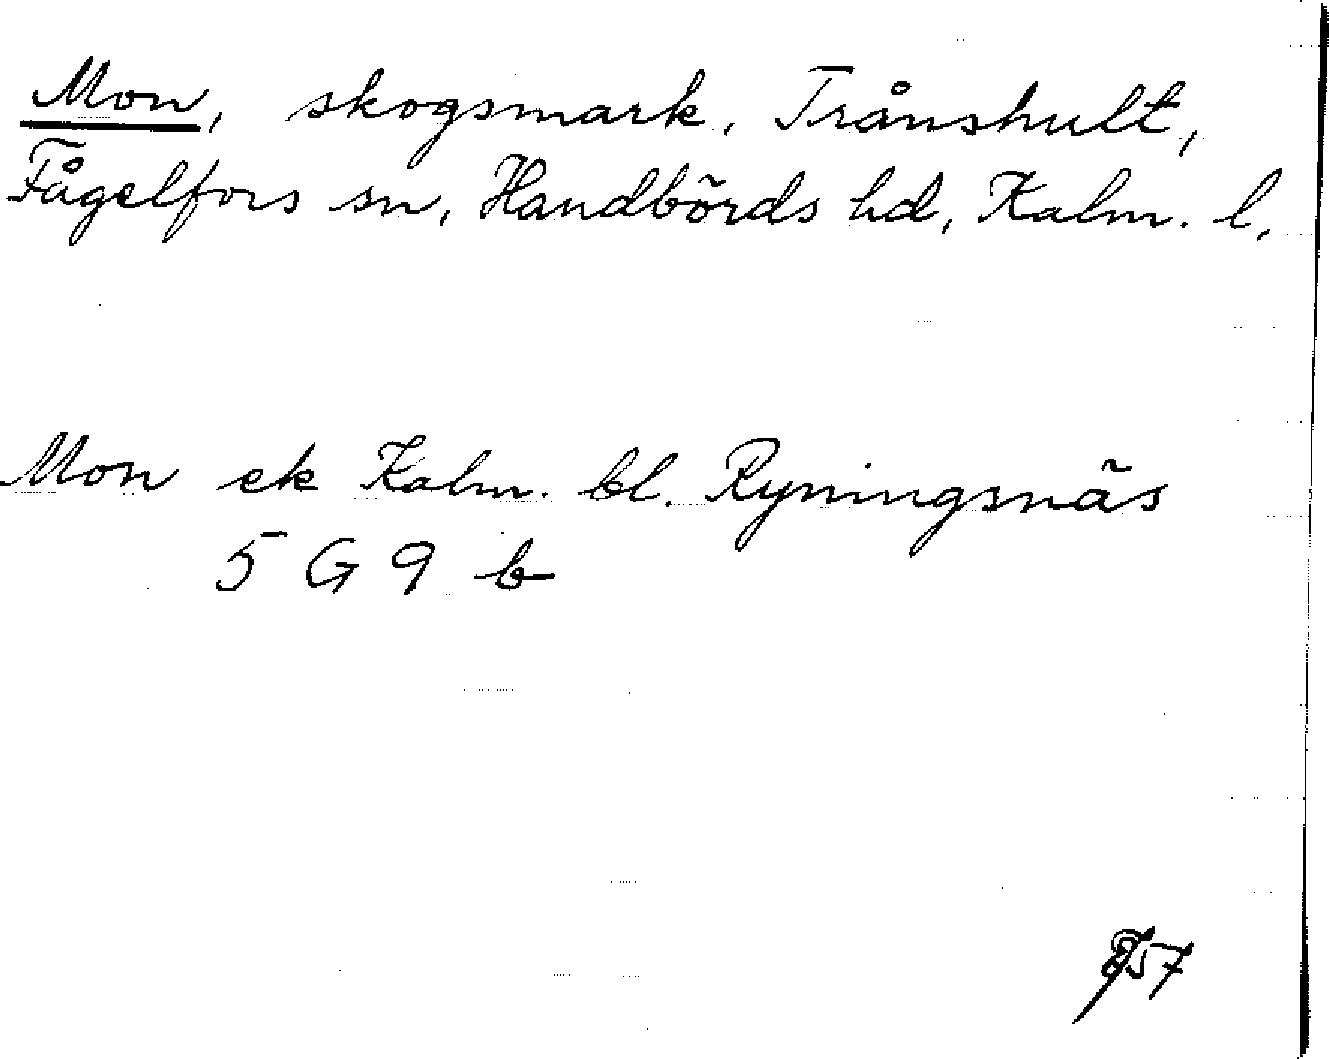 Mon, skogsmark, Trånshult,
Fågelfors sn, Handbörds hd, Kalm. l.
Mon ek Kalm. bl. Ryningsnäs
5 G 9 b
57